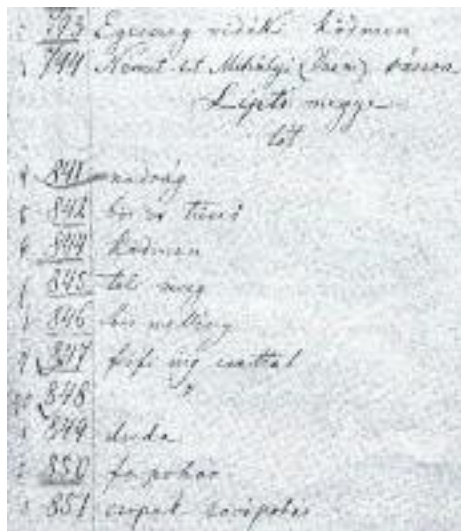 793 Egerszeg vidéki ködmen
794 Német-szt. Mihályi (Vasm)
Liptó megye
tót
841 nadrág
842 bőr tüsző
844 ködmen
845 téli
846 bőr mellény
847 férfi ing csattal
848 "
849 duda
850 fa pohár
851